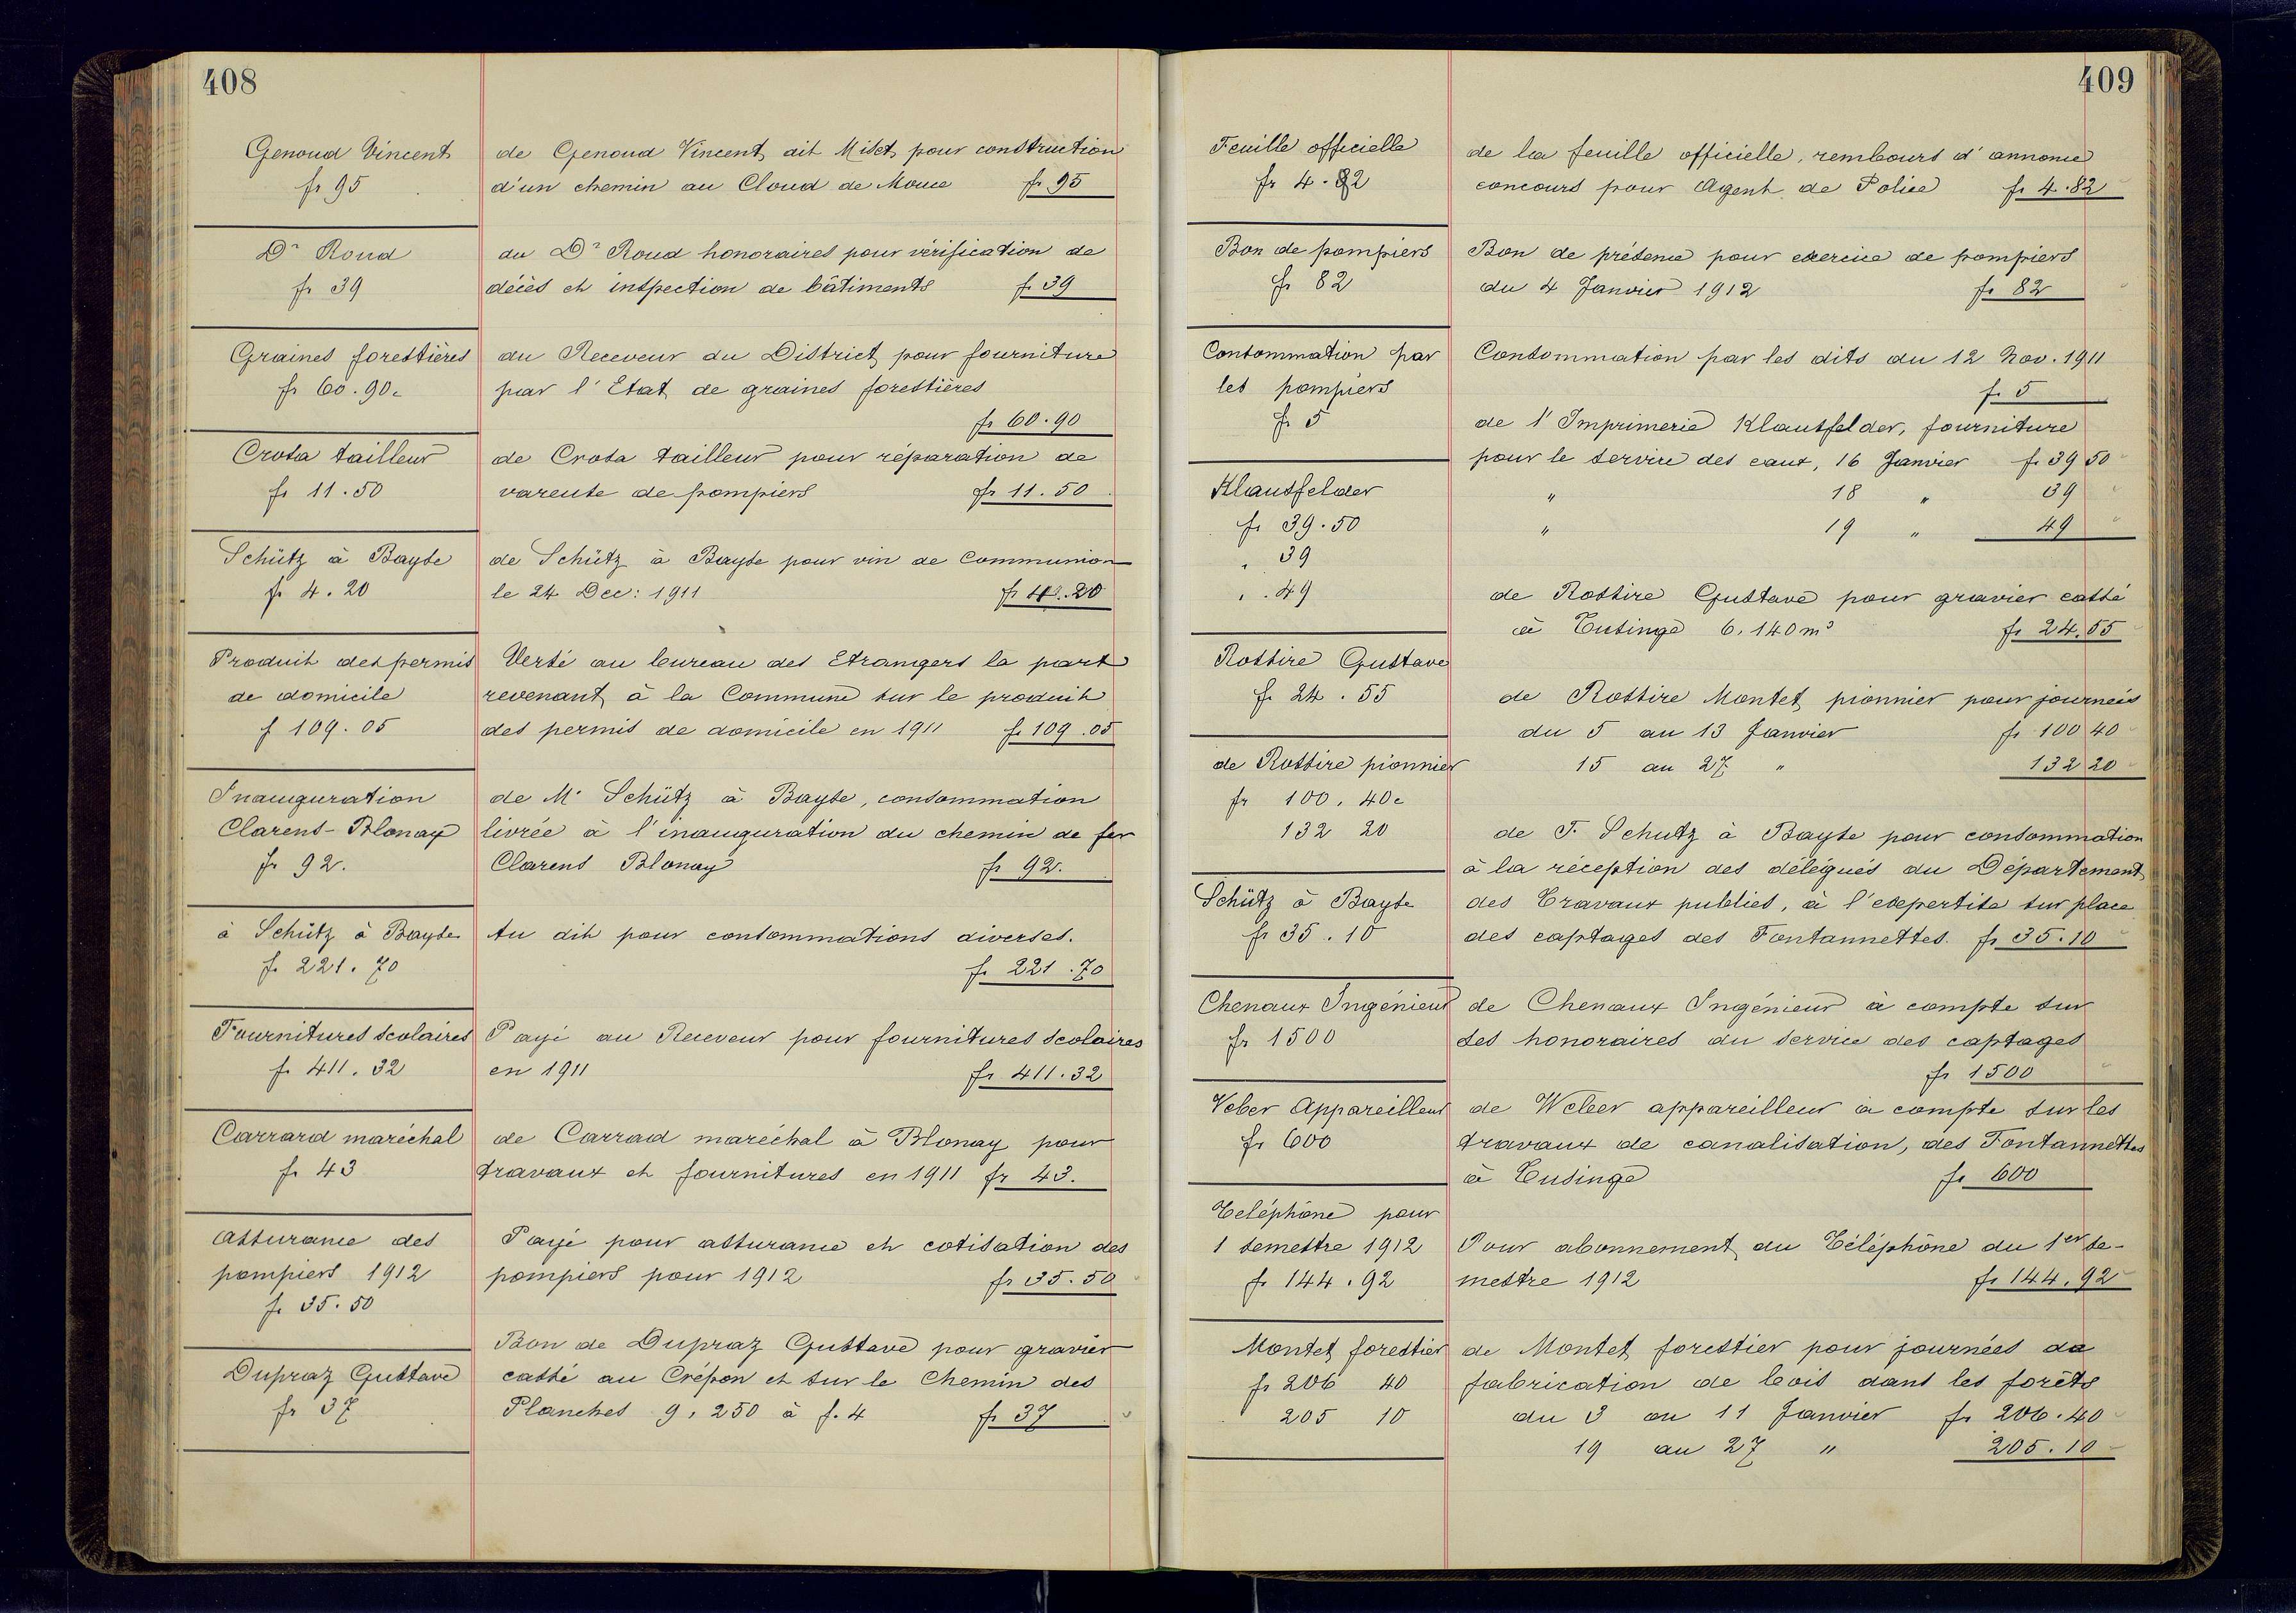 408
Genoud Vincent
fr 95
de Genoud Vincent, dit Miset, pour construction
d'un chemin au Cloud de Mouce fr. 95
Dr Roud
fr 39
du Dr Roud honoraires pour vérification de
décès et inspection de bâtiments f. 39
Graines forestières
fr 60.90c
du Receveur du District, pour fourniture
par l'Etat de graines forestières
fr 60.90
Crosa tailleur
fr 11.50
de Crosa tailleur pour réparation de
vareuse de pompiers fr 11.50
Schütz à Bayse
fr 4.20
de Schütz à Bayse pour vin de Communion
le 24 Dec: 1911 fr 4.20
Produit des permis
de domicile
f 109.05
Versé au bureau des Etrangers la part
revenant à la Commune sur le produit
des permis de domicile en 1911 fr 109.05
Inauguration
Clarens-Blonay
fr 92.
de Mr Schütz à Bayse, consommation
livrée à l'inauguration du chemin de fer
Clarens Blonay fr 92.
à Schütz à Bayse
f. 221.70
Au dit pour consommations diverses.
fr 221.70
Fournitures scolaires
f. 411.32
Payé au Receveur pour fournitures scolaires
en 1911 fr 411.32
Carrard maréchal
fr 43
de Carrad maréchal à Blonay pour
travaux et fournitures en 1911 fr 43.
Assurance des
pompiers 1912
fr 35.50
Payé pour assurance et cotisation des
pompiers pour 1912 fr 35.50
Dupraz Gustave
fr 37
Bon de Dupraz Gustave pour gravier
cassé au Crépon et sur le Chemin des
Planches 9,250 à f. 4 fr 37
409
Feuille officielle
fr 4.82
de la feuille officielle, rembours d'annonce
concours pour Agent de Police fr 4.82
Bon de pompiers
fr 82
Bon de présence pour exercice de pompiers
du 4 Janvier 1912 fr 82
Consommation par
les pompiers
fr 5
Consommation par les dits du 12 Nov. 1911
f. 5
Klausfelder
fr 39.50
" 39
" 49
de l'Imprimerie Klausfelder, fourniture
pour le service des eaux, 16 Janvier fr 39 50
" 18 " 39
" 19 " 49
Rossire Gustave
fr 24.55
de Rossire Gustave pour gravier cassé
à Tusinge 6,140 m3 fr 24.55
de Rossire pionnier
fr 100.40c
132 20
de Rossire Montet pionnier pour journées
du 5 au 13 Janvier fr 100 40
15 au 27 " 132 20
Schütz à Bayse
fr 35.10
de F. Schutz à Bayse pour consommation
à la réception des délégués du Département
des Travaux publics, à l'expertise sur place
des captages des Fontannettes. fr 35.10
Chenaux Ingénieur
fr 1500
de Chenaux Ingénieur à compte sur
ses honoraires du service des captages
fr 1500
Veber Appareilleur
fr 600
de Weber appareilleur à compte sur les
travaux de canalisation, des Fontannettes
à Tusinge fr 600
Téléphône pour
1 semestre 1912
fr 144.92
Pour abonnement du Téléphône du 1er se-
mestre 1912 fr 144.92
Montet forestier
fr 206 40
205 10
de Montet forestier pour journées de
fabrication de bois dans les forêts
du 3 au 11 Janvier fr 206.40
19 au 27 " 205.10